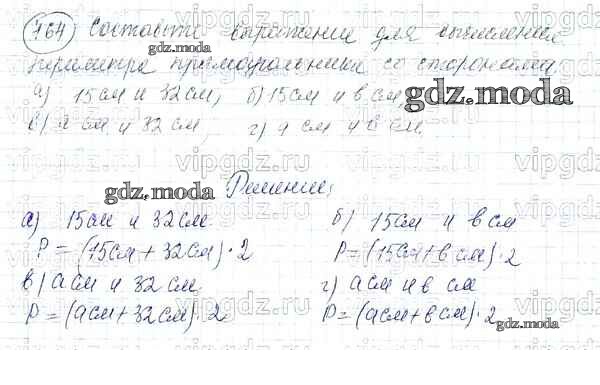 764 Составьте выражение для вычисления
периметра прямоугольника со сторонами
а) 15см и 32см, б) 15см и в см,
в) а см и 32 см, г) а см и в см.
Решение:
а) 15см и 32см. б) 15см и в см
P = (15см + 32см) · 2 P = (15см + в см) · 2
в) а см и 32 см г) а см и в см
P = (а см + 32 см) · 2 P = (а см + в см) · 2
gdz.moda
gdz.moda
gdz.moda
gdz.moda
vipgdz.ru